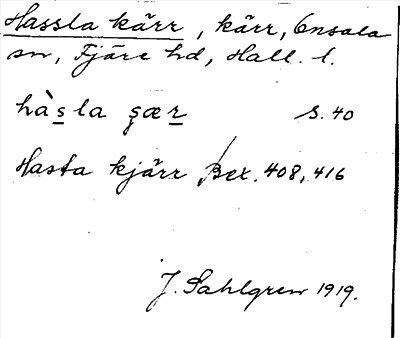 Hassla kärr, kärr, Onsala
sn, Fjäre hd, Hall. l.
hàsla şær s. 40
Hasta kjärr Bex. 408, 416
J. Sahlgren 1919.